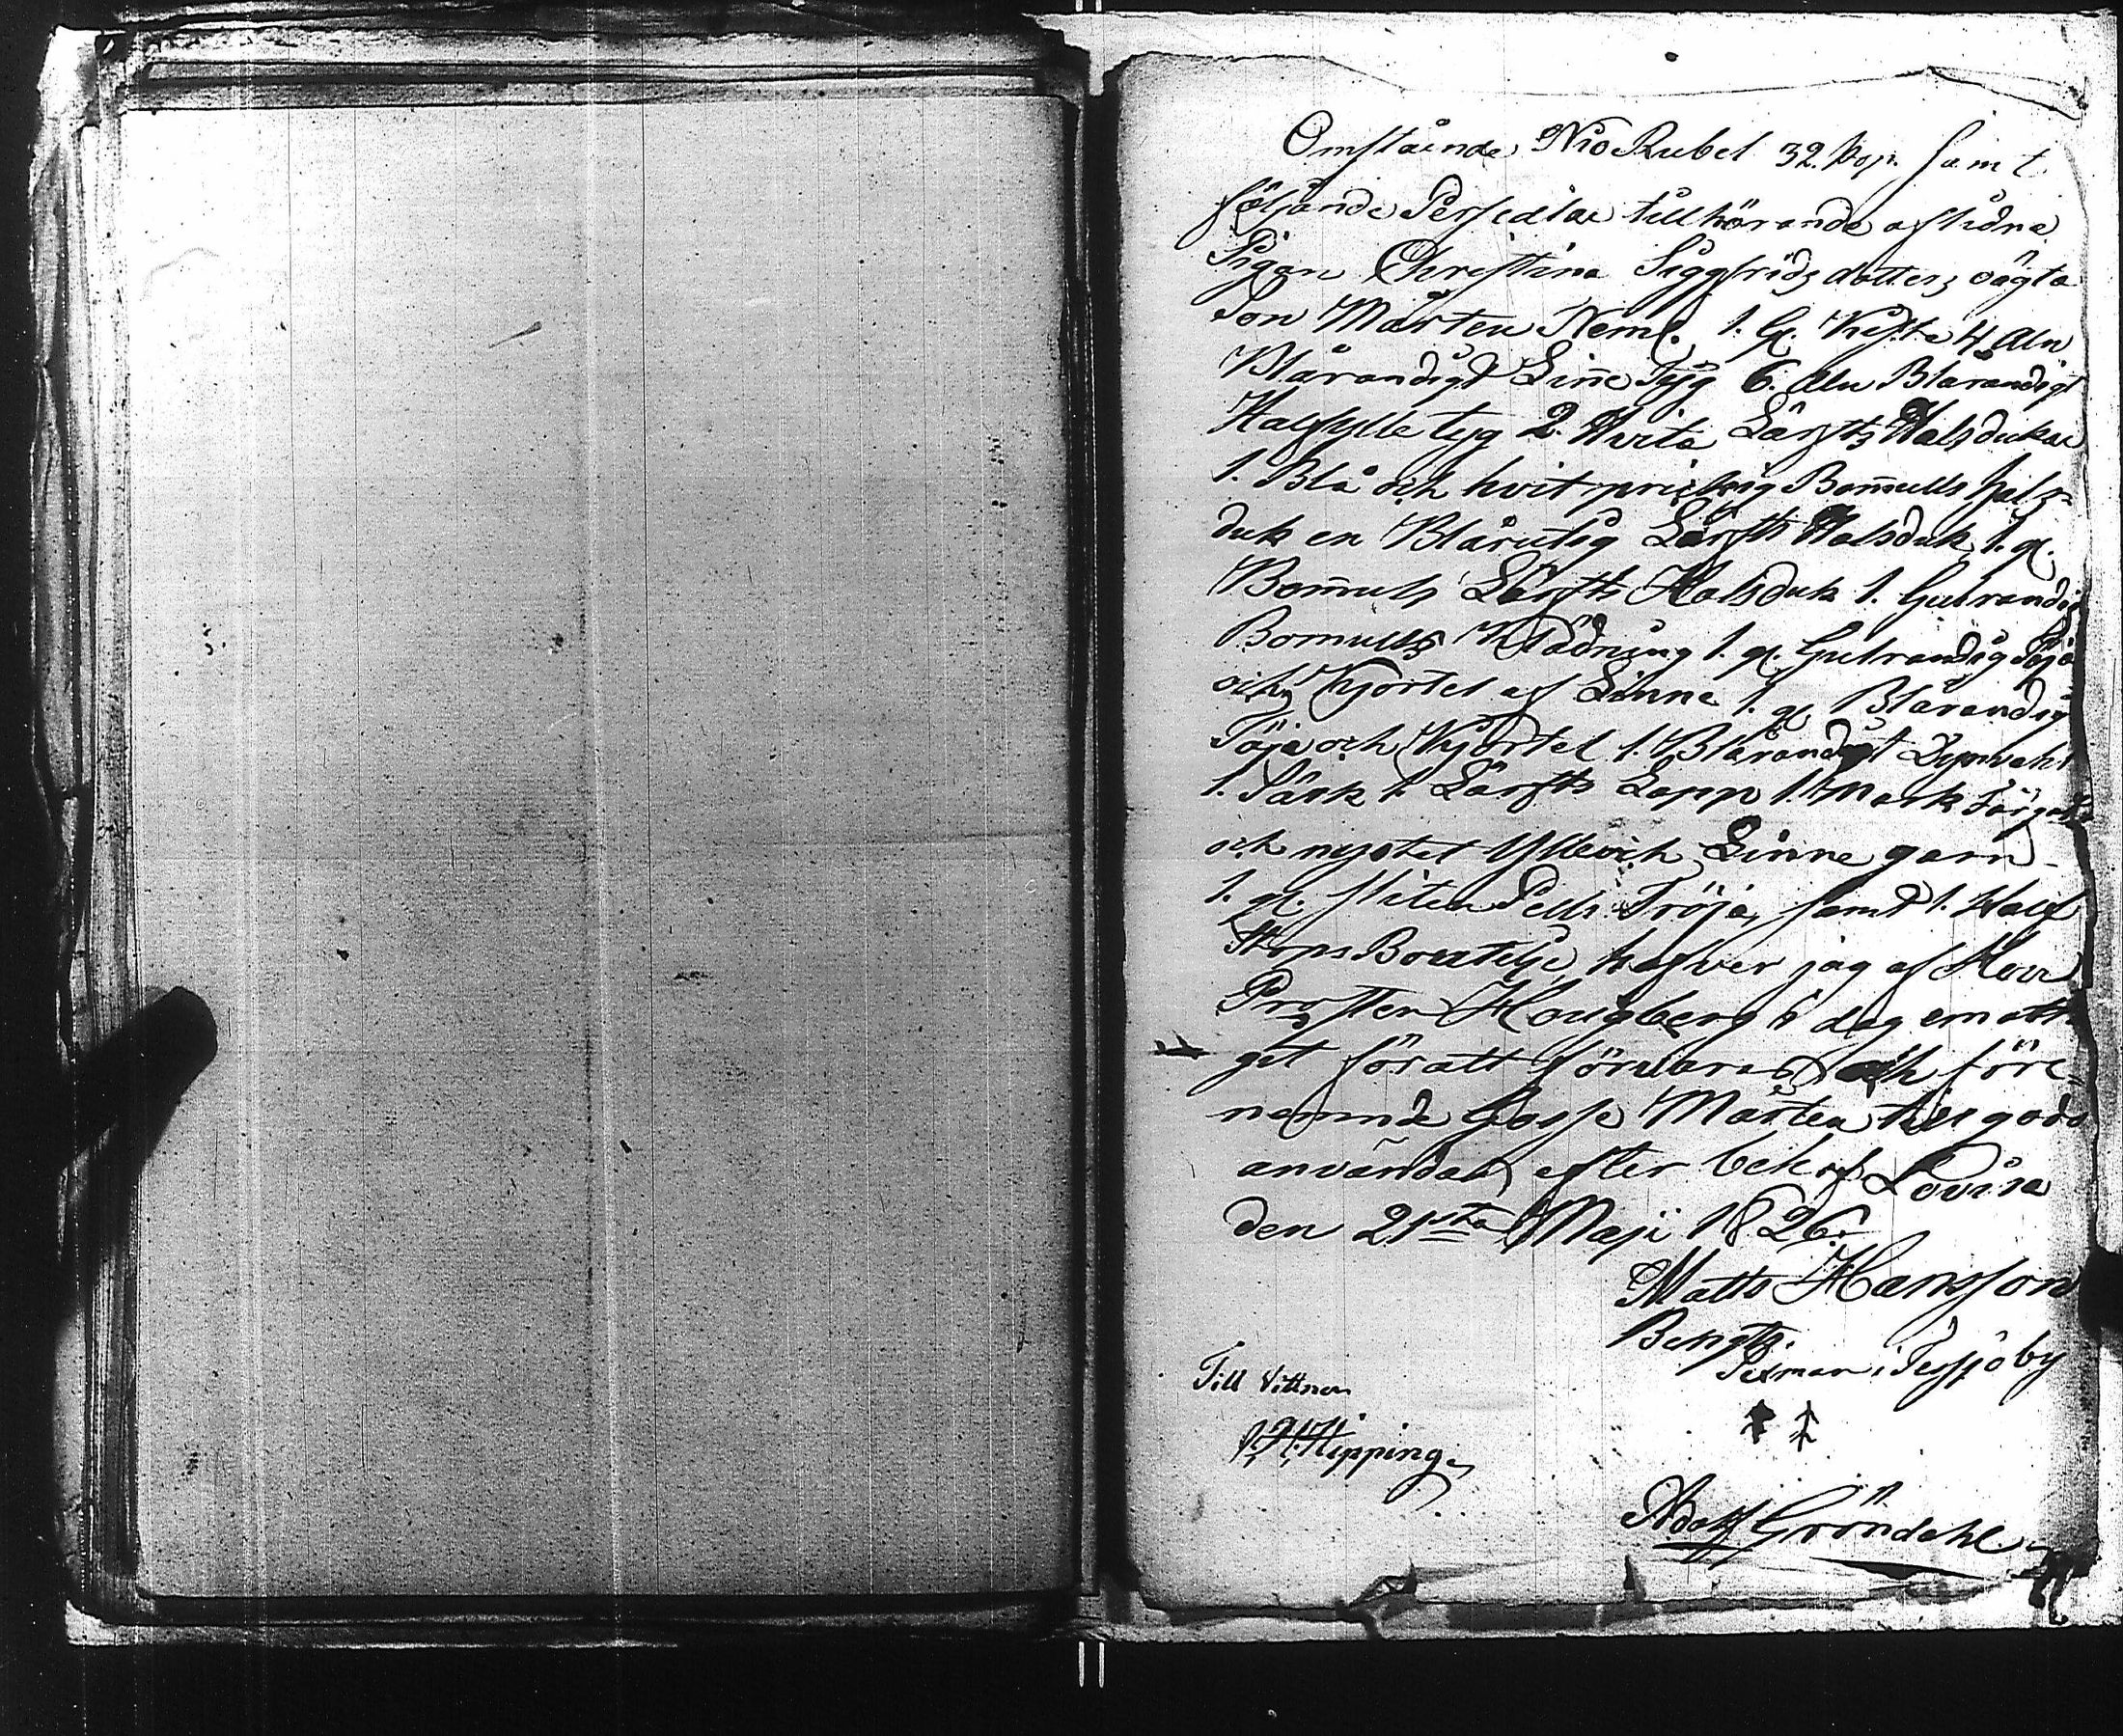 Omstående Nio Rubel 32. Kop. samt
följande Persedlar tillhörande aflidne
Pigan Christina Siggfridz dotters oägta
Son Mårten Neml. 1. Gl. Kista 4 Aln
Blårandigt Linne Tyg 6. Aln Blårandigt
Halfylle tyg 2. Hvita Lärfts Halsdukar
1. Blå och hvitprickig Bom̄ulls halz-
duk en Blårutig Lärfts Halsduk 1. gl.
Bom̄ulls Lärfts Halsduk 1. Gulrandig
Bomulls Klädning 1. gl. Gulrandig Töja
och Kjortel af Linne 1. gl. Blårandig
Töja och Kjortel 1. Blårandigt
1. Särk 1. Lärfts Lapp 1. Mark
och nystet Ylle och Linne garn
1. gl. sliten Pells Tröja, samt 1. Half
Stops Boutelje, hafver jag af Herr
Prosten Hougberg i dag emotta-
get för att förvaras och före-
nemnde Gosse Mårten till godo
användas efter behof Lovisa
den 21sta Maji 1826.
Matts Hansson
Bengts
i Tessjöby
Till Vittnen
Hipping
Adolf Gröndahl